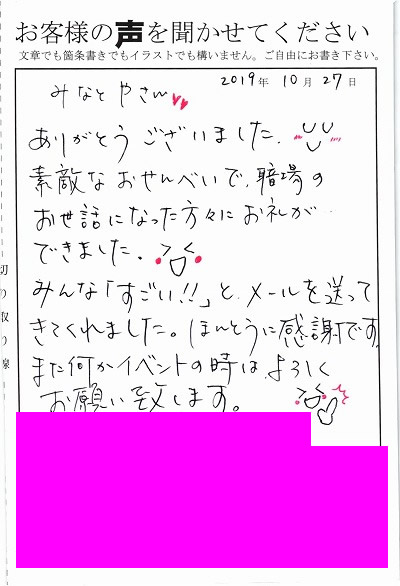 お客様の声を聞かせてください
文章でも箇条書きでもイラストでも構いません。ご自由にお書き下さい。
2019年 10月 27日
みなとやさん
ありがとうございました。
素敵なおせんべいで、職場の
お世話になった方々にお礼が
できました。
みんな「すごい!!」と、メールを送って
きてくれました。ほんとうに感謝です。
また何かイベントの時は、よろしく
お願い致します。
切り取り線